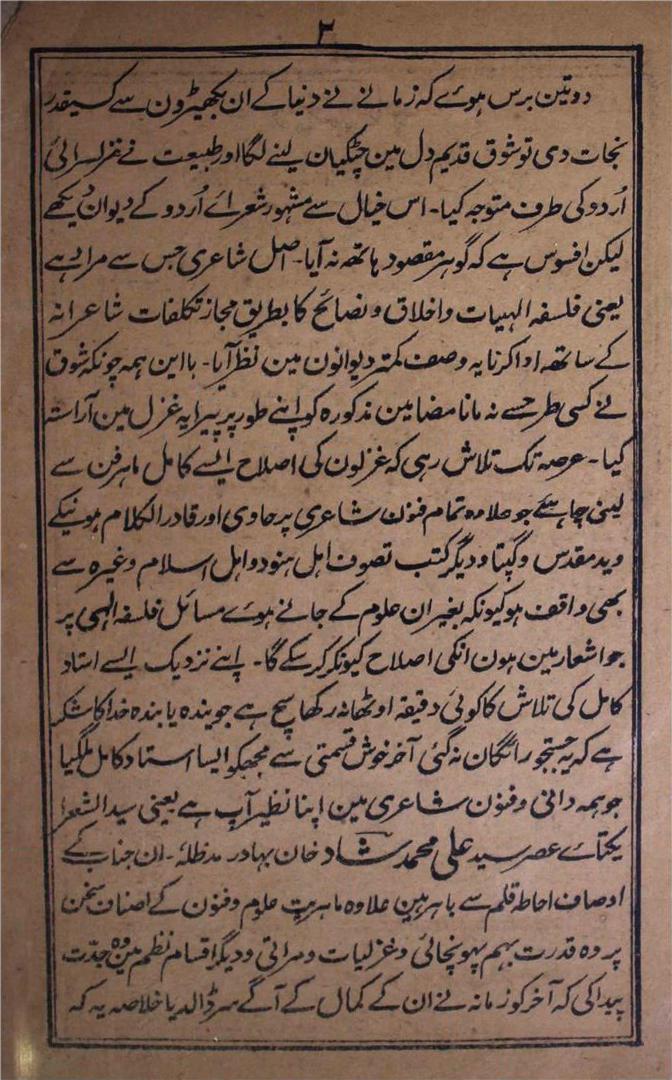 ۲
دو تین برس ہوئے کہ زمانے نے دنیا کے ان بکھیڑون سے کسیقدر
نجات دی تو شوق قدیم دل مین چٹکیان لینے لگا اور طبیعت نے غزلسرائی
اُردو کی طرف متوجہ کیا۔ اس خیال سے مشہور شعراے اُردو کے دیوان دیکھے
لیکن افسوس ہے کہ گوہر مقصود ہاتھ نہ آیا۔ اصل شاعری جس سے مراد ہے
یعنی فلسفہ الٰہیات و اخلاق و نصائح کا بطریق مجاز تکلفات شاعرانہ
کے ساتھ ادا کرنا یہ وصف کمتر دیوانون مین نظر آیا۔ با این ہمہ چونکہ شوق
نے کسی طرحسے نہ مانا مضامین مذکورہ کو اپنے طور پر پیرایہ غزل مین آراستہ
کیا۔ عرصہ تک تلاش رہی کہ غزلون کی اصلاح ایسے کامل ماہر فن سے
لینی چاہئے جو علاوہ تمام فنون شاعری پر حاوی اور قادر الکلام ہونیکے
وید مقدس و گیتا و دیگر کتب تصوف اہل ہنود و اہل اسلام وغیرہ سے
بھی واقف ہو کیونکہ بغیر ان علوم کے جانے ہوے مسائل فلسفہ الٰہی پر
جو اشعار مین ہون انکی اصلاح کیونکر کر سکے گا۔ اپنے نزدیک ایسے استاد
کامل کی تلاش کا کوئی دقیقہ اوٹھا نہ رکھا سچ ہے جویندہ یابندہ خدا کا شکر
ہے کہ یہ جستجو رائگان نہ گئی آخر خوش قسمتی سے مجھکو ایسا استاد کامل ملگیا
جو ہمہ دانی و فنون شاعری مین اپنا نظیر آپ ہے یعنی سید الشعرا
یکتاے عصر سید علی محمد شاد خان بہادر مدظلہ۔ ان جناب کے
اوصاف احاطہ قلم سے باہر ہین علاوہ ماہریت علوم و فنون کے اصناف سخن
پر وہ قدرت بہم پہونچائی و غزلیات و مراثی و دیگر اقسام نظم مین وہ جدّت
پیدا کی کہ آخر کو زمانہ نے ان کے کمال کے آگے سر ڈالدیا خلاصہ یہ کہ